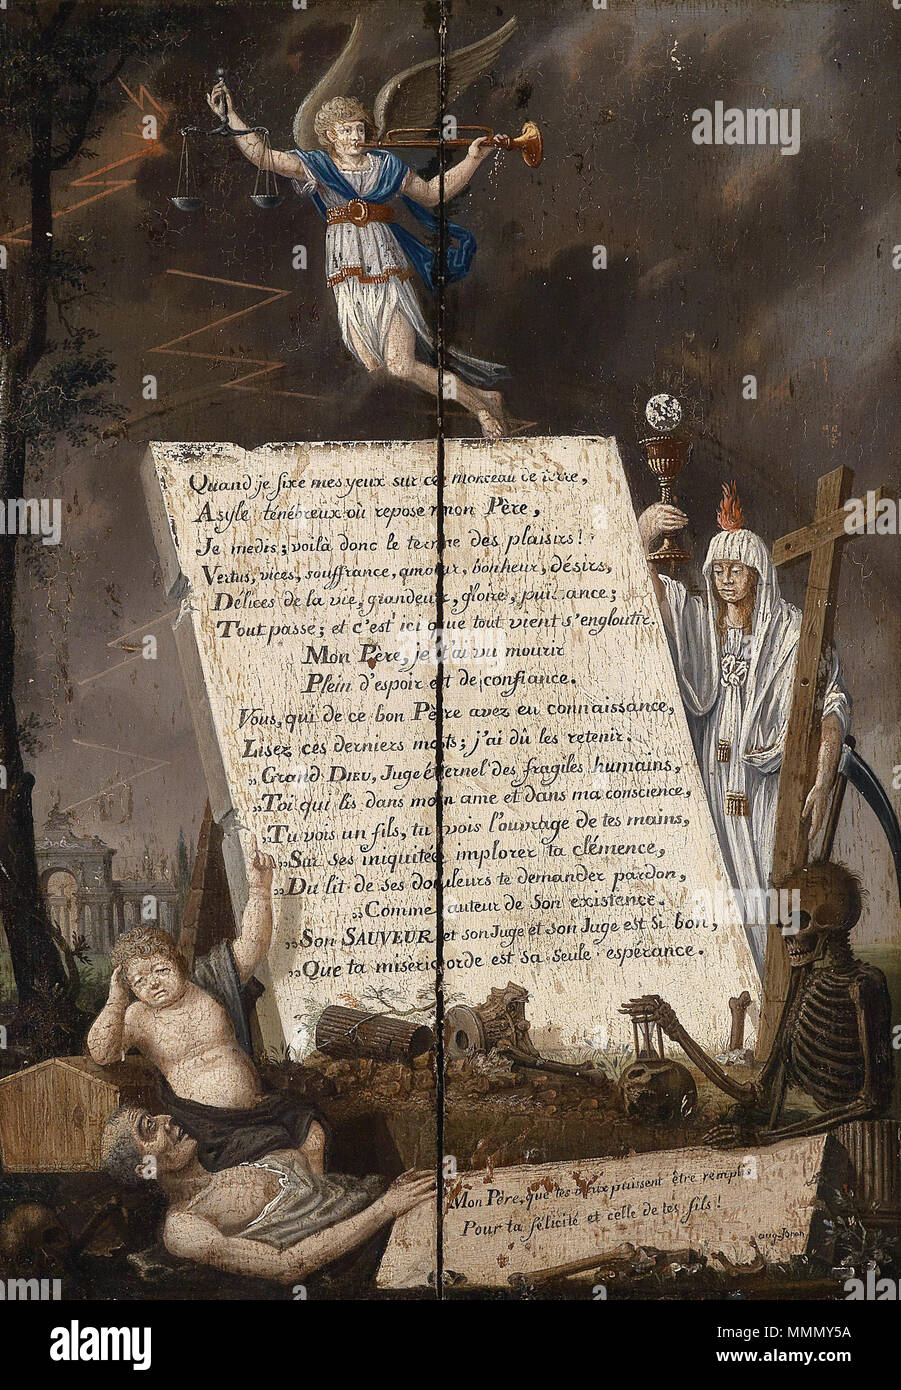 Quand je fixe mes yeux sur ce morceau de
Asyle ténébreux où repose mon Père,
Je medis; voilà donc le terme des plaisirs!
Vertus, vices, souffrance, amour, bonheur, désirs,
Délices de la vie, grandeur, gloire, puissance;
Tout passe; et c'est ici que tout vient s'engloutir.
Mon Père, je t'ai vu mourir
Plein d'espoir et de confiance.
Vous, qui de ce bon Père avez eu connaissance,
Lisez ces derniers mots; j'ai dû les retenir.
„Grand DIEU, Juge éternel des fragiles humains,
„Toi qui lis dans mon ame et dans ma conscience,
„Tu vois un fils, tu vois l'ouvrage de tes mains,
„Sur ses iniquités implorer ta clémence,
„Du lit de ses douleurs te demander pardon,
„Comme auteur de son existence.
„Son SAUVEUR et son Juge et son Juge est si bon,
„Que ta miséricorde est sa seule espérance.
Mon Père, que tes vœux puissent être remplis
Pour ta félicité et celle de tes fils!
alamy
MMMY5A
www.alamy.com